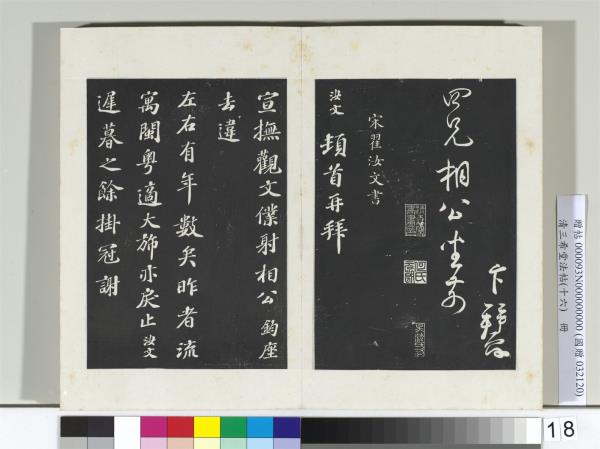 四兄相公坐前
宋翟汝文書
汝文頓首再拜
宣撫觀文僕射相公鈞座
去違
左右有年數矣昨者流
寓閩粵適大旆亦戾止汝文
遲暮之餘掛冠謝
贈帖 000093N000000000 (國贈 032120)
清三希堂法帖(十六) 冊
18